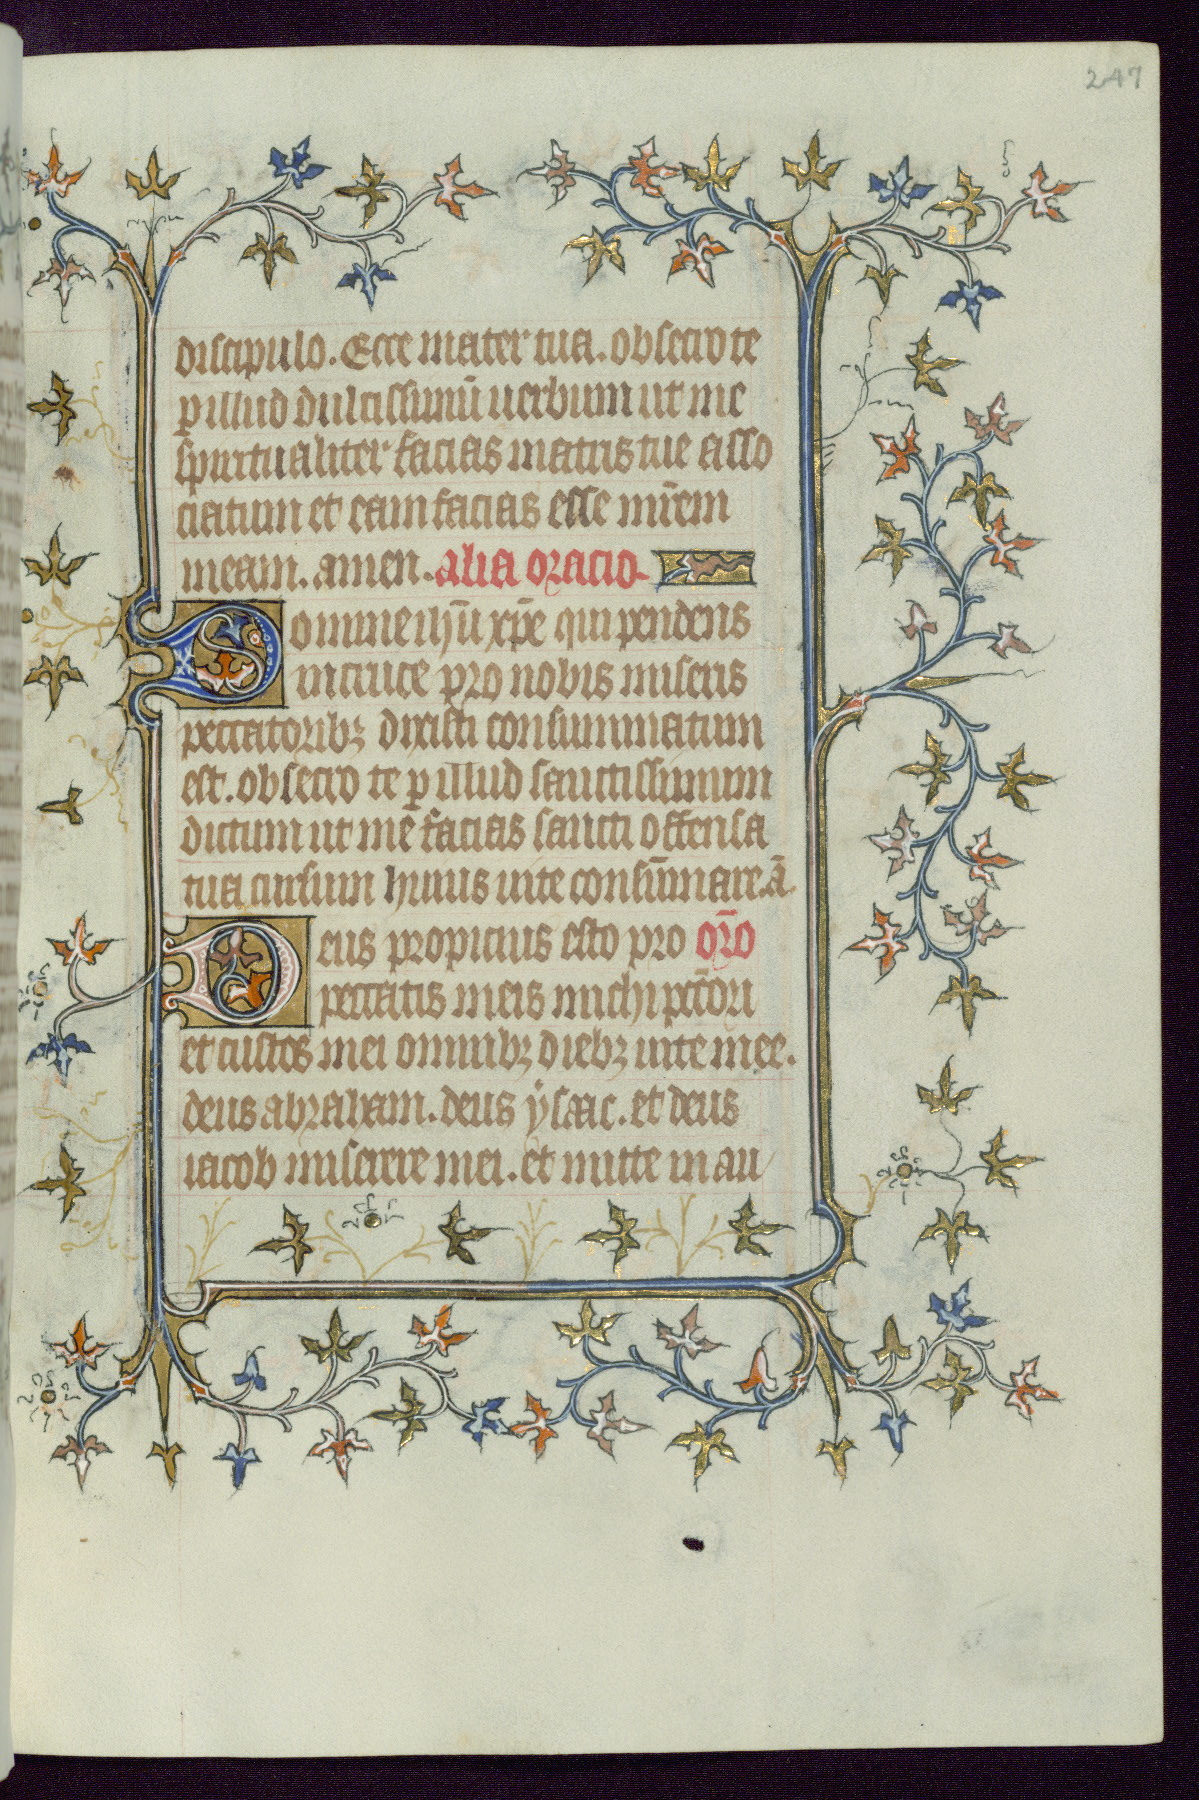 247
discipulo. Ecce mater tua. obsecro te
p illud dulcissimū uerbum ut me
spiritualiter facias matris tue asso
ciatum et eam facias esse mr̄em
meam. amen. alia oracio.
Domine ihū xp̄e qui pendens
in cruce pro nobis miseris
peccatoribꝫ dixisti consummatum
est. obsecro te p illud sanctissimum
dictum ut me facias sancti offensa
tua cursum huius uite consūmare. ā
Deus propicius esto pro or̄o
peccatis meis michi pecc̄ori
et custos mei omnibꝫ diebꝫ uite mee.
deus abraham. deus ysaac. et deus
iacob miserere mei. et mitte in au